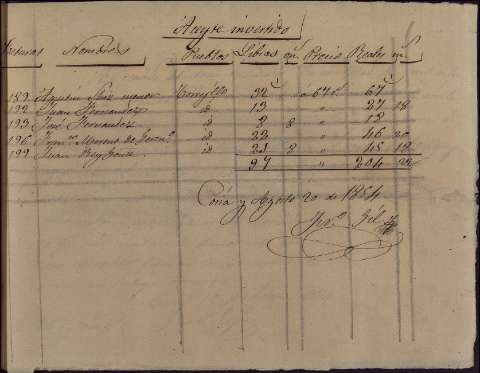 Aceyte invertido
Facturas Nombres Pueblos Libras on.s Precio Reales m.s
189 Agustin Saiz menor Torrejillo 32 a 67 67
192 Juan Hernandez id 13 " 27 18
193 José Hernandez id 8 8 " 18
196 Moreno de id 22 " 46 20
199 Juan id 21 8 " 45 18
97 " 204 22
Coria y Agosto 20 de 1854
Gil